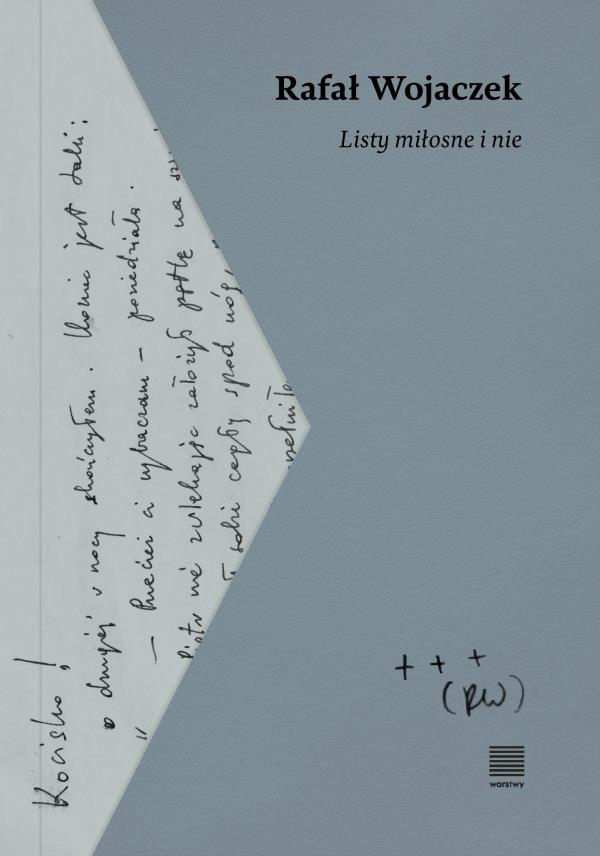 Rafał Wojaczek
Listy miłosne i nie
Kocisko!
o drugiej w nocy skończyłem. Koniec jest taki:
"
— Przecież ci wybaczam — powiedziała.
Piotr nie zwlekając założył pętlę na
sobie spod nóg, "
+ + +
(RW)
warstwy